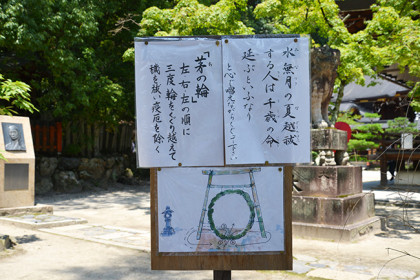 水無月の夏越祓
する人は千歳の命
延ぶというなり
と心に唱えながらくぐって下さい
「茅の輪」
左右左の順に
三度輪をくぐり越えて
穢を祓い疫厄を除く